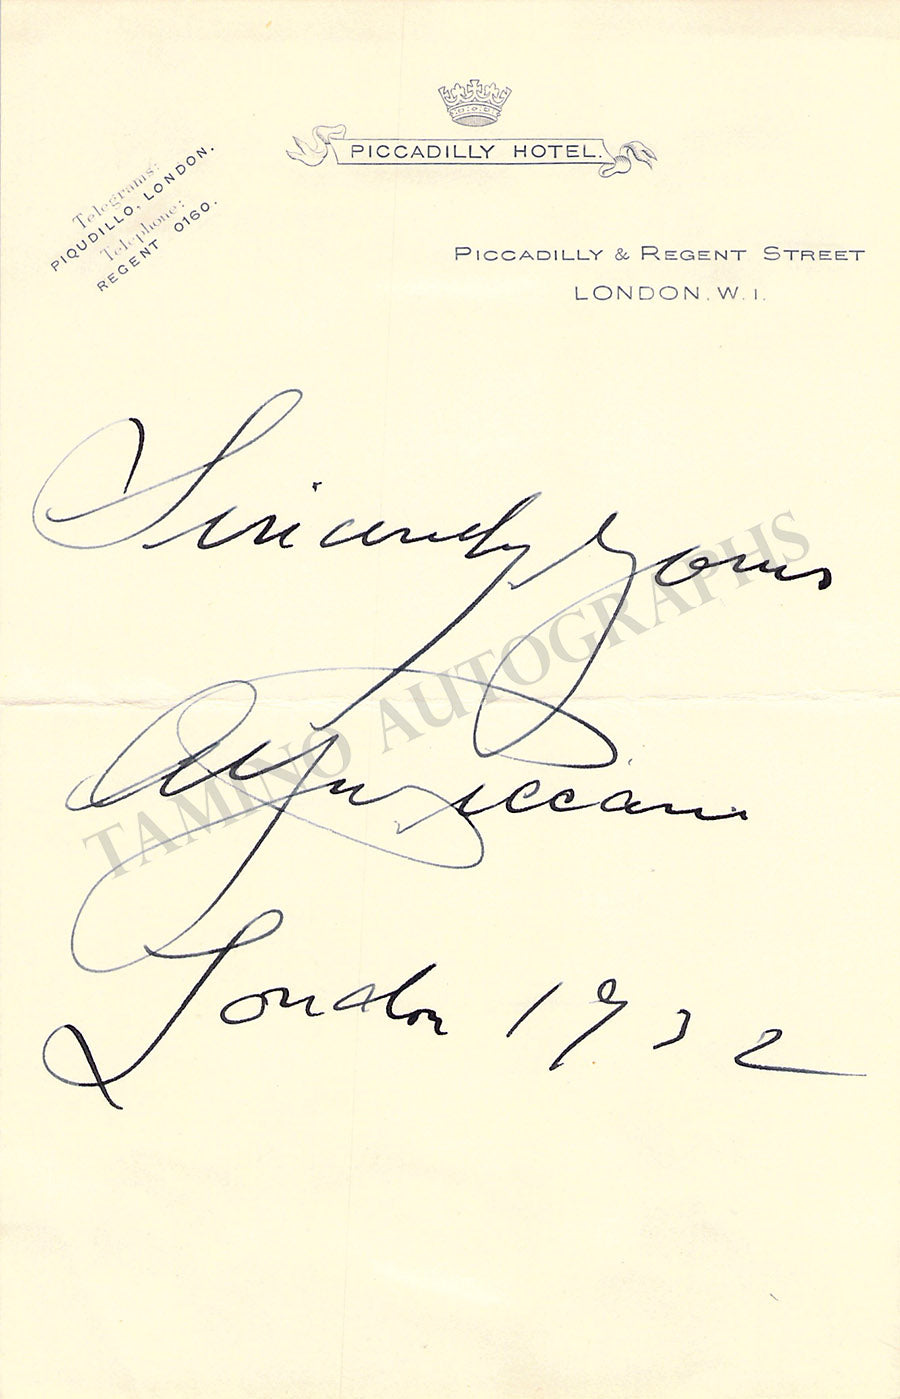 PICCADILLY HOTEL.
Telegrams:
PIQUDILLO, LONDON.
Telephone:
REGENT 0160.
PICCADILLY & REGENT STREET
LONDON. W. 1.
Sincerely Yours
London 1932
TAMINO AUTOGRAPHS